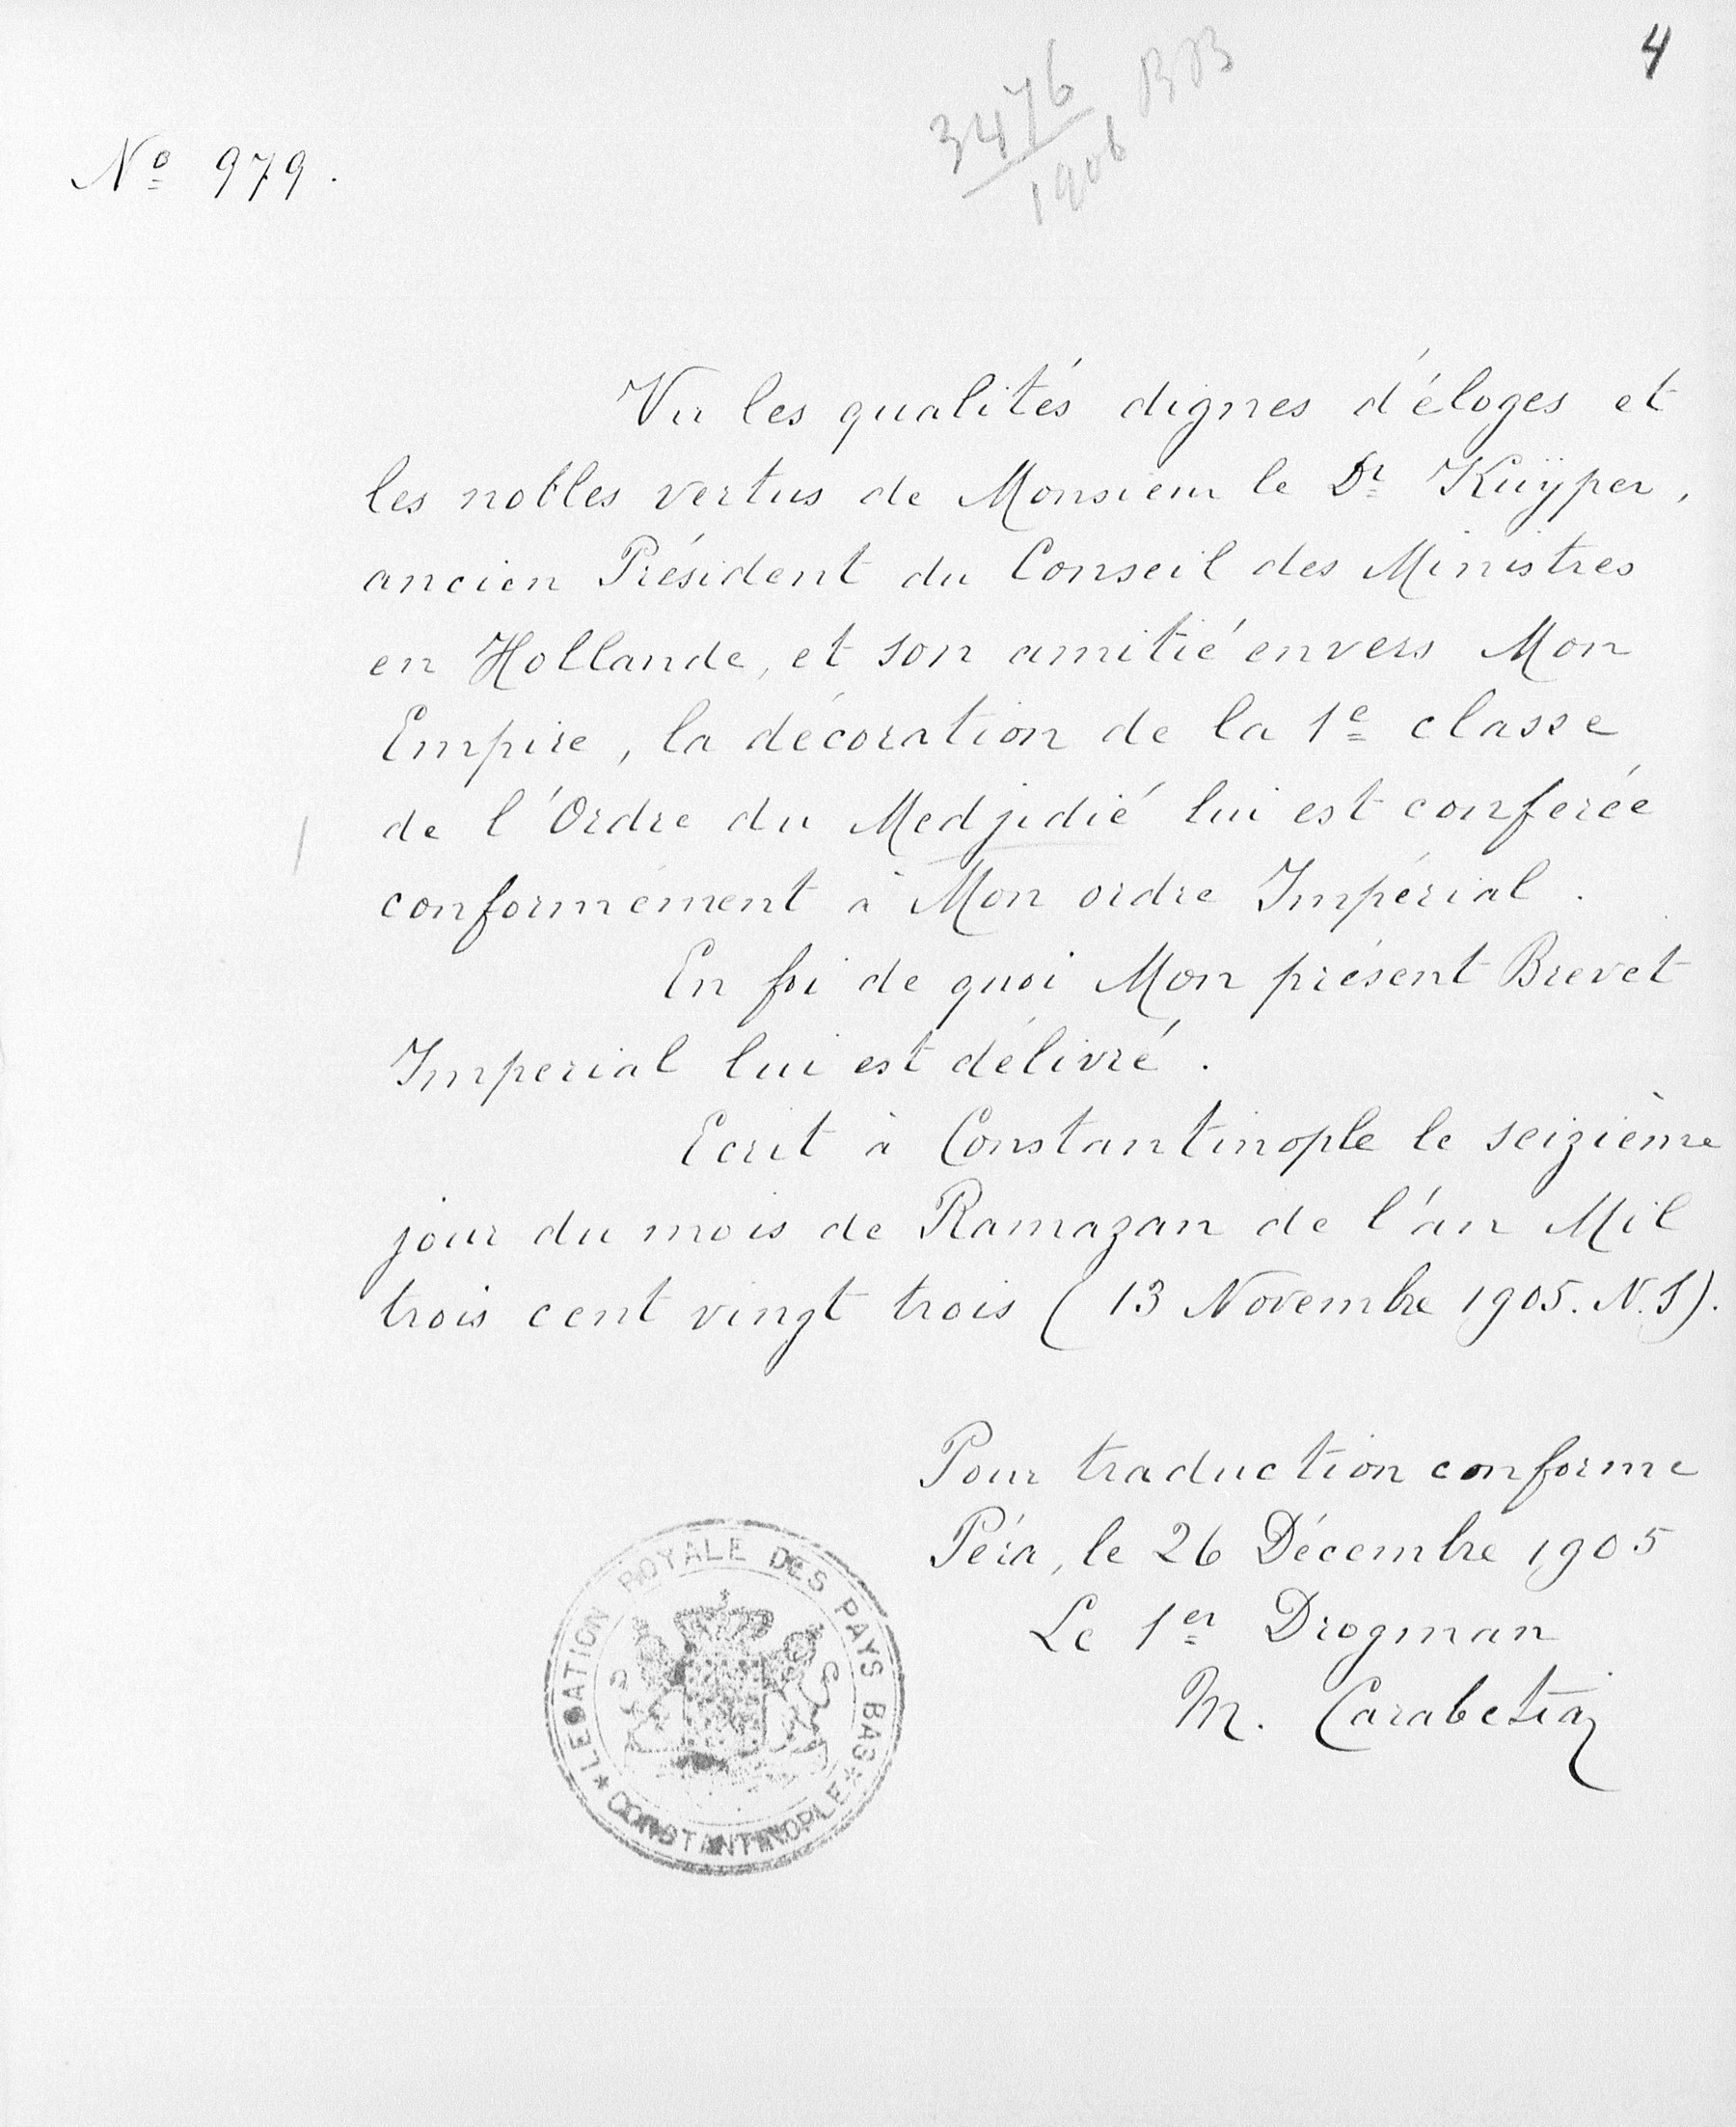 4
3476 BB
1906
Nº 979.
Vu les qualités dignes d'éloges et
les nobles vertus de Monsieur le Dr Kuÿper,
ancien Président du Conseil des Ministres
en Hollande, et son amitié envers Mon
Empire, la décoration de la 1e classe
de l'Ordre du Medjidié lui est conferée
conformément à Mon ordre Impérial.
En foi de quoi Mon présent Brevet
Imperial lui est délivré.
Ecrit à Constantinople le seizième
jour du mois de Ramazan de l'an Mil
trois cent vingt trois (13 Novembre 1905. N.S).
Pour traduction conforme
Péra, le 26 Décembre 1905
Le 1er Drogman
M.
LEGATION ROYALE DES PAYS BAS
* CONSTANTINOPLE *